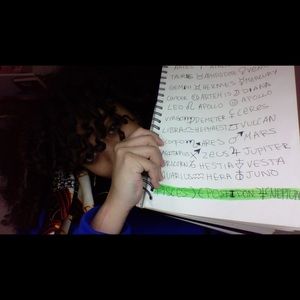 ARIES
TAURUS ♉ APHRODITE ♀ VENUS
GEMINI ♊ HERMES ☿ MERCURY
CANCER ♋ ARTEMIS ☽ DIANA
LEO ♌ APOLLO ☉ APOLLO
VIRGO ♍ DEMETER ⚳ CERES
LIBRA ♎ HEPHAEST VULCAN
SCORPIO ♏ ARES ♂ MARS
♐ ZEUS ♃ JUPITER
HESTIA VESTA
AQUARIUS ♒ HERA JUNO
PISCES ♓ POSEIDON ♆ NEPTUN